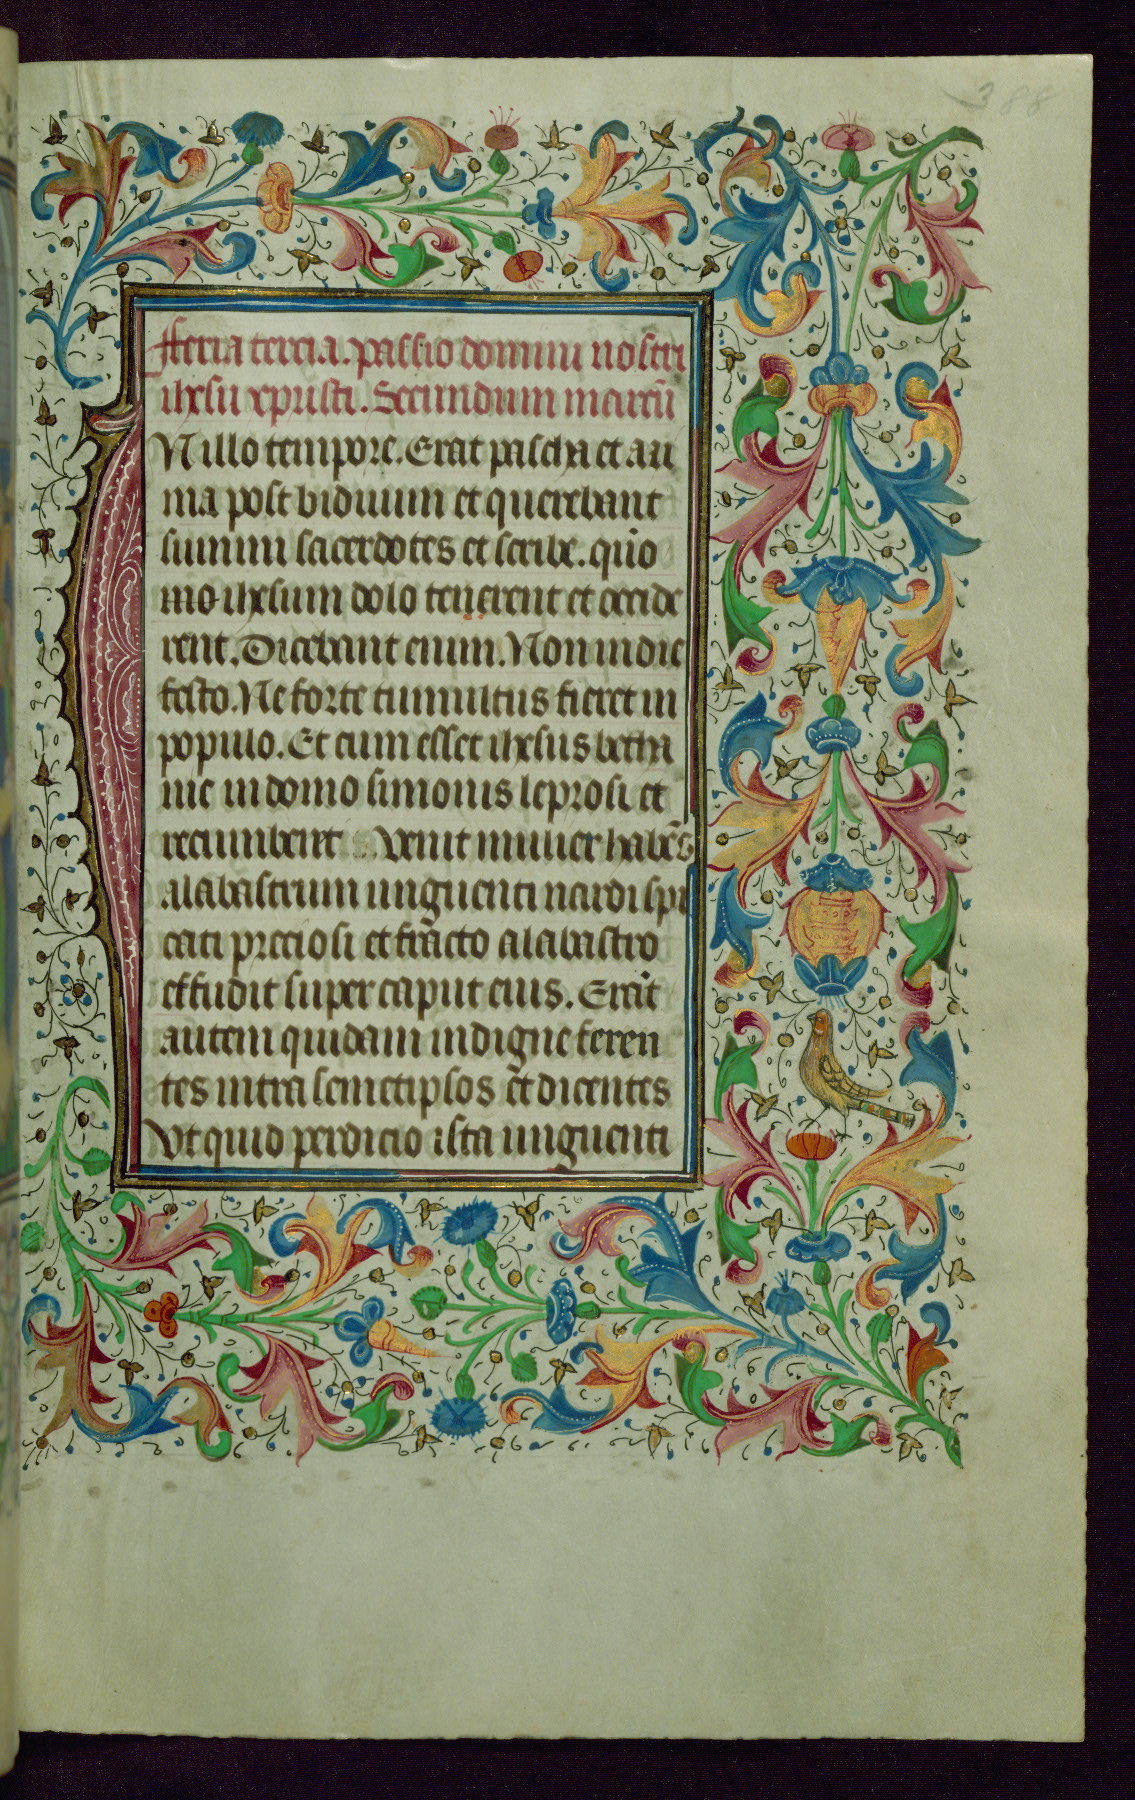 388
Feria tercia. passio domini nostri
ihesu xpristi. Secundum marcũ
IN illo tempore. Erat pascha et azi
ma post biduum et querebant
summi sacerdotes et scribe. quo
mõ ihesum dolo tenerent et occide
rent. Dicebant enim. Non in die
festo. Ne forte tumultus fieret in
populo. Et cum esset ihesus betha
nie in domo simonis leprosi et
recumberet. Venit mulier habẽs
alabastrum unguenti nardi spi
cati preciosi et fracto alabastro
effudit super caput eius. Erãt
autem quidam indigne feren
tes intra semetipsos et dicentes
Ut quid perdicio ista unguenti